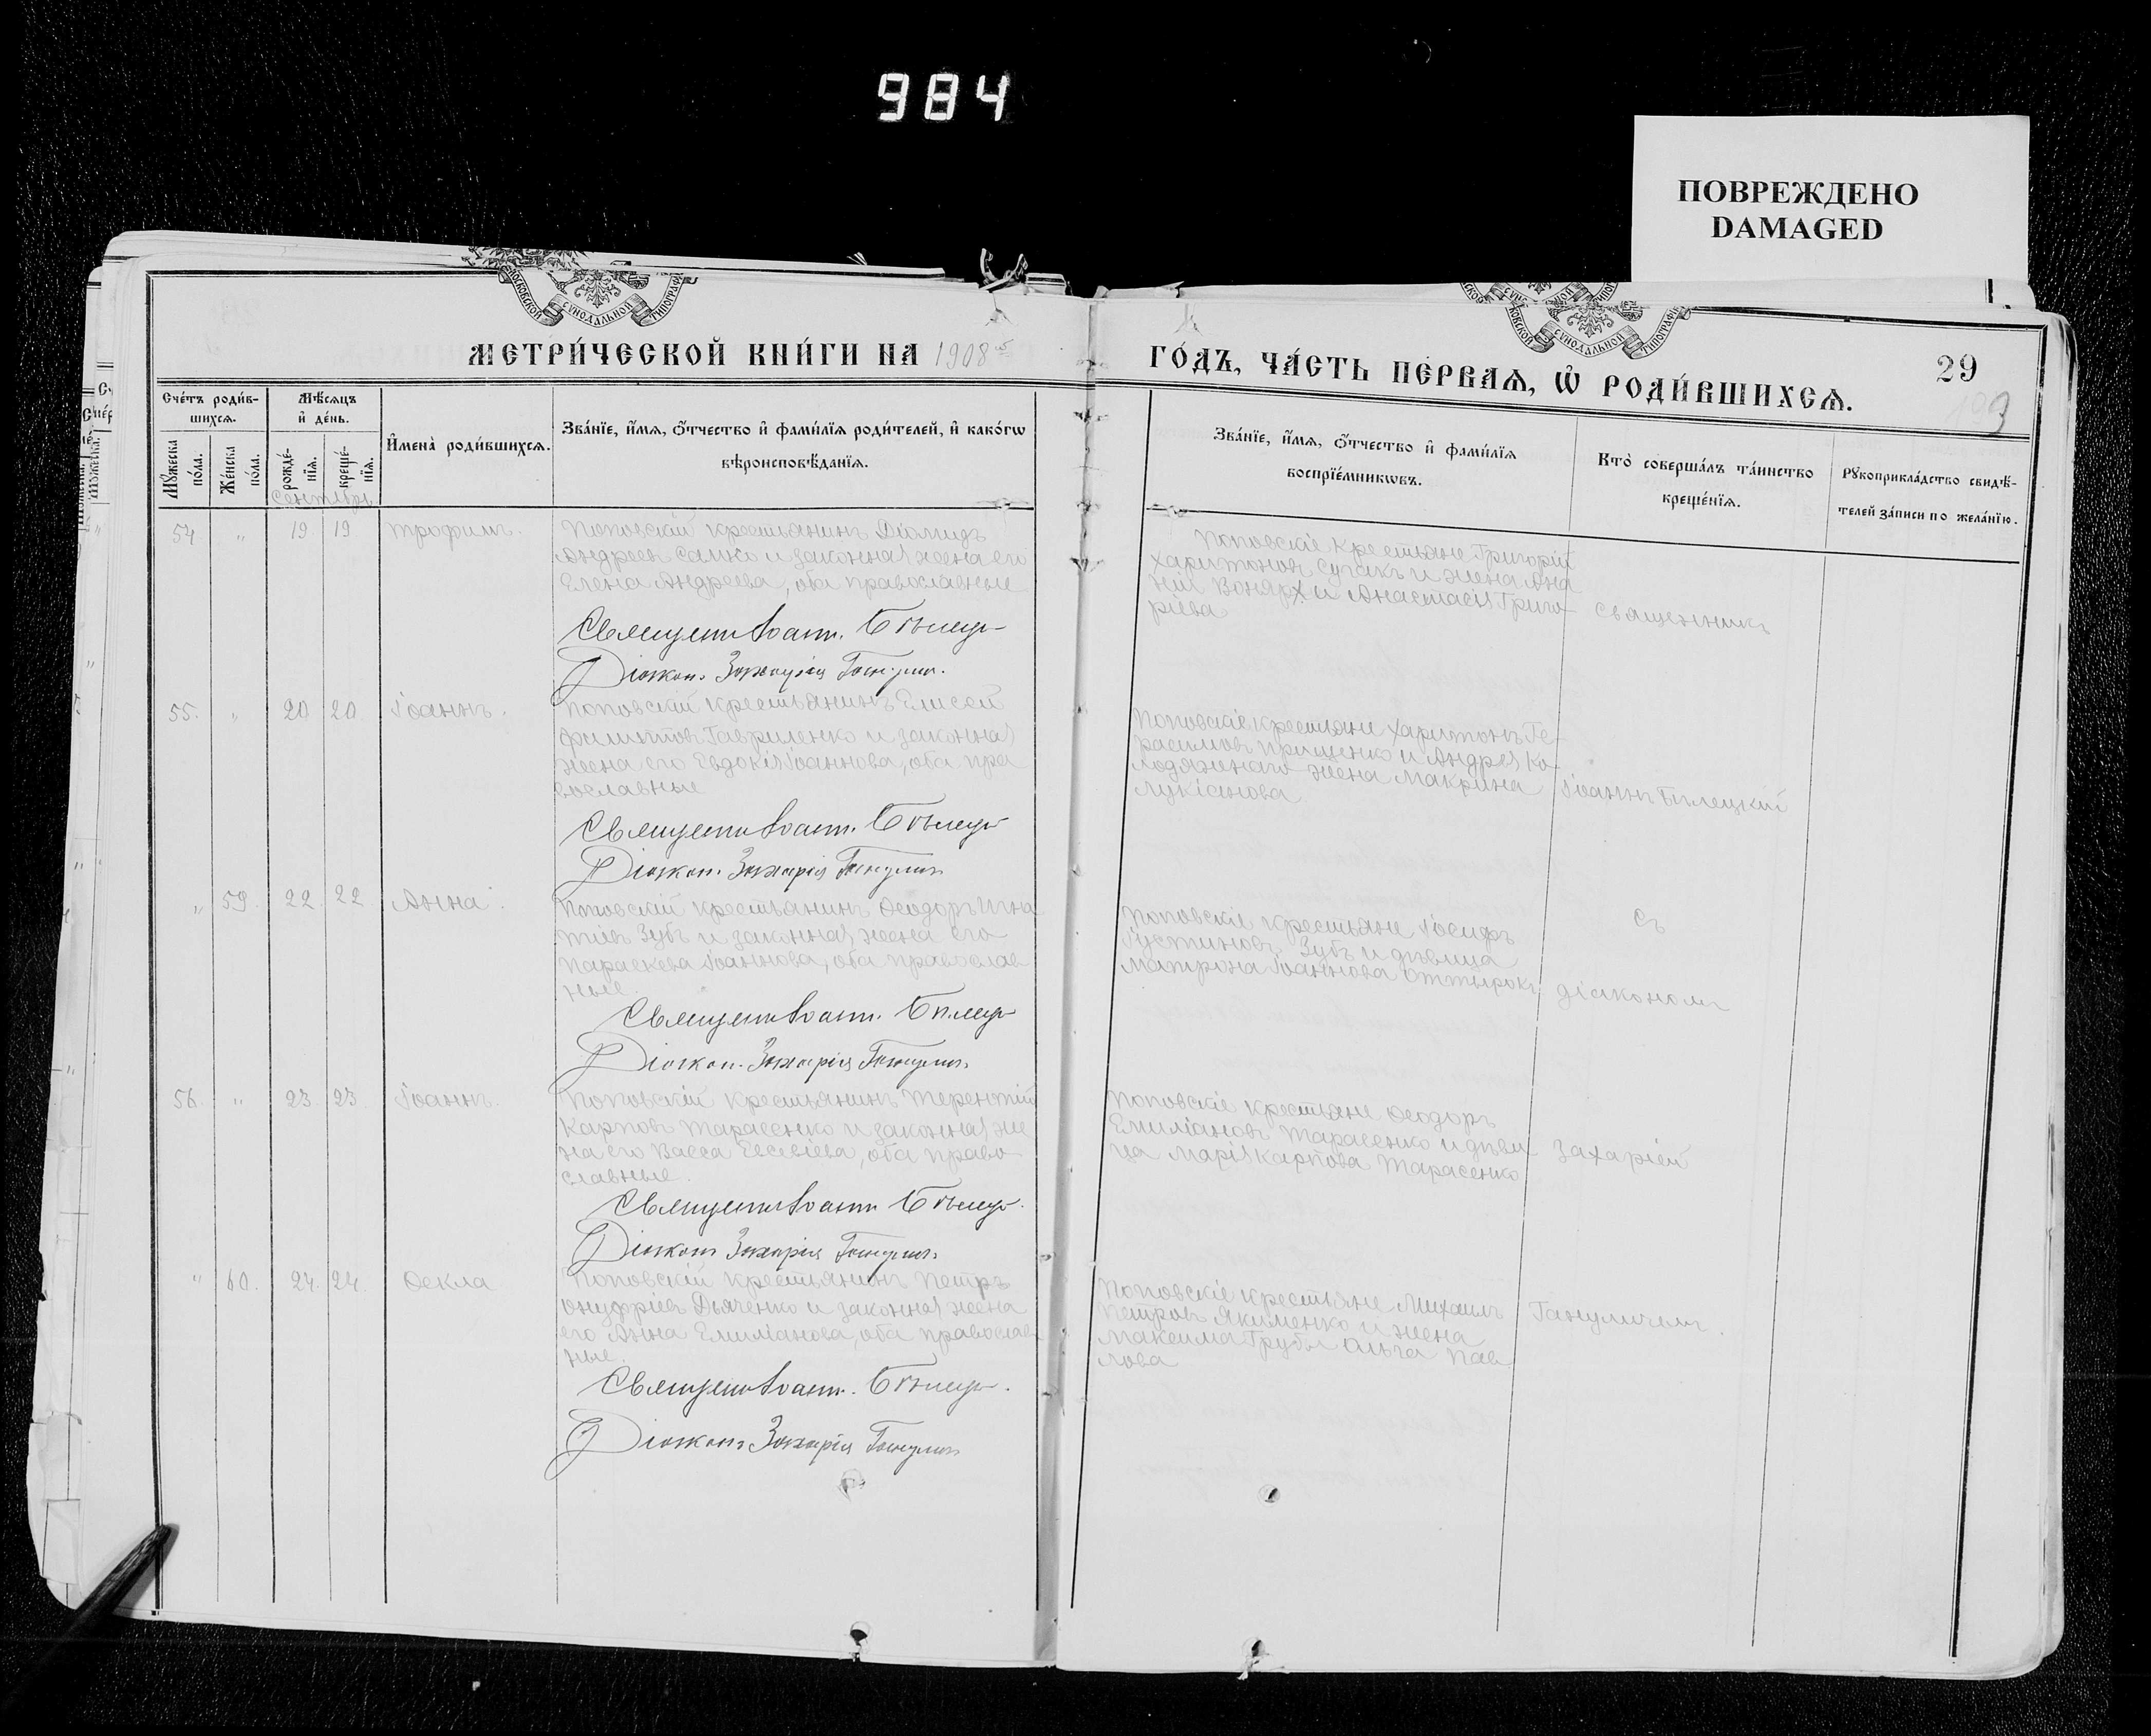 984
ПОВРЕЖДЕНО
DAMAGED
МОСКОВСКОЙ СУНОДАЛЬНОЙ ТИПОГРАФ
СУНОДАЛЬНОЙ ТИПОГРАФ
МЕТРИ́ЧЕСКОЙ КНИ́ГИ НА 1908
ГО́ДЪ, ЧА́СТЬ ПЕ́РВАѦ, Ѡ҆ РОДИ́ВШИХСѦ.
29
Сче́тъ роди́в-
шихсѧ.
Мѣ́сѧцъ
и҆ де́нь.
Мꙋ́жеска
по́ла.
Же́нска
по́ла.
рожде́-
нїѧ.
креще́-
нїѧ.
И҆мена̀ роди́вшихсѧ.
Зва́нїе, и҆́мѧ, ѻ҆́тчество и҆ фами́лїѧ роди́телей, и҆ како́гѡ
вѣроисповѣ́данїѧ.
Зва́нїе, и҆́мѧ, ѻ҆́тчество и҆ фами́лїѧ
воспрїе́мникѡвъ.
Кто̀ соверша́лъ та́инство
креще́нїѧ.
Рꙋкоприкла́дство свидѣ́-
телей за́писи по жела́нїю.
Сентябрь
54 " 19 19 Трофимъ.
Поповскій крестьянинъ Діомидъ
Андреевъ Салко и законная жена его
Елена Андреева, оба православные
Священникъ Іоаннъ Бѣлецкій
Діаконъ Захарія Ганулич
Поповскіе крестьяне Григорій
Харитоновъ Сугакъ и жена Ана
ній Вонярх и Анастасія Григо-
ріева
Священникъ
55. " 20 20 Іоаннъ.
Поповскій крестьянинъ Елисей
Филиповъ Гавриленко и законная
жена его Евдокія Іоаннова, оба пра
вославные
Священникъ Іоаннъ Бѣлецкій
Діаконъ Захарія Ганулич
Поповскіе крестьяне Харитонъ Ге-
расимовъ Прищенко и Андрея Ко-
лодяжнаго жена Макрина
Лукіанова
Іоаннъ Бѣлецкій
" 59. 22. 22. Анна.
Поповскій крестьянинъ Ѳеодоръ Игна
тіевъ Зубъ и законная жена его
Параскева Іоаннова, оба православ
ные.
Священникъ Іоаннъ Бѣлецкій
Діаконъ Захарія Ганулич
Поповскіе крестьяне Іосифъ
Іустиновъ Зубъ и дѣвица
Матрона Іоаннова
съ
діакономъ
56. " 23. 23. Іоаннъ.
Поповскій крестьянинъ Терентій
Карповъ Тарасенко и законная же
на его Васса Евсевіева, оба право
славные.
Священникъ Іоаннъ Бѣлецкій
Діаконъ Захарія Ганулич
Поповскіе крестьяне Ѳеодоръ
Емиліановъ Тарасенко и дѣви
ца Марія Карпова Тарасенко
Захаріей
" 60. 24. 24. Ѳекла
Поповскій крестьянинъ Петръ
Онуфріевъ Дьяченко и законная жена
его Анна Емиліанова, оба православ
ные.
Священникъ Іоаннъ Бѣлецкій
Діаконъ Захарія Ганулич
Поповскіе крестьяне Михаилъ
Петровъ Якименко и жена
Максима Грубы Ольга Пав
лова
Гануличемъ.